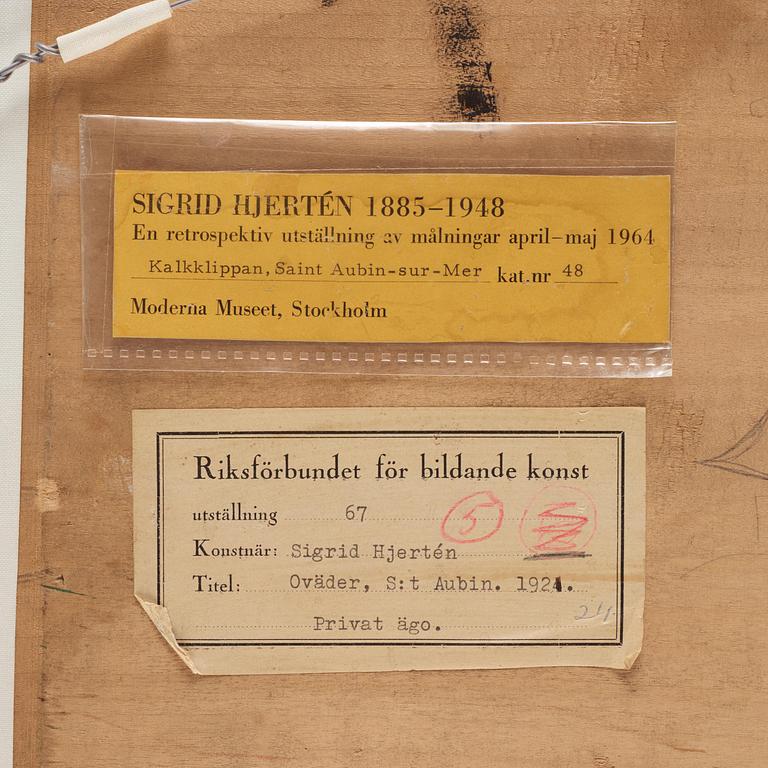 SIGRID HJERTÉN 1885–1948
En retrospektiv utställning av målningar april–maj 1964
Kalkklippan, Saint Aubin-sur-Mer kat.nr 48
Moderna Museet, Stockholm
Riksförbundet för bildande konst
utställning 67 5
Konstnär: Sigrid Hjertén
Titel: Oväder, S:t Aubin. 1921.
24
Privat ägo.